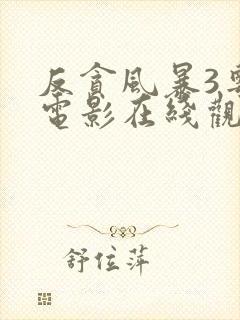 反貪風暴3
電影在綫觀
舒位萍